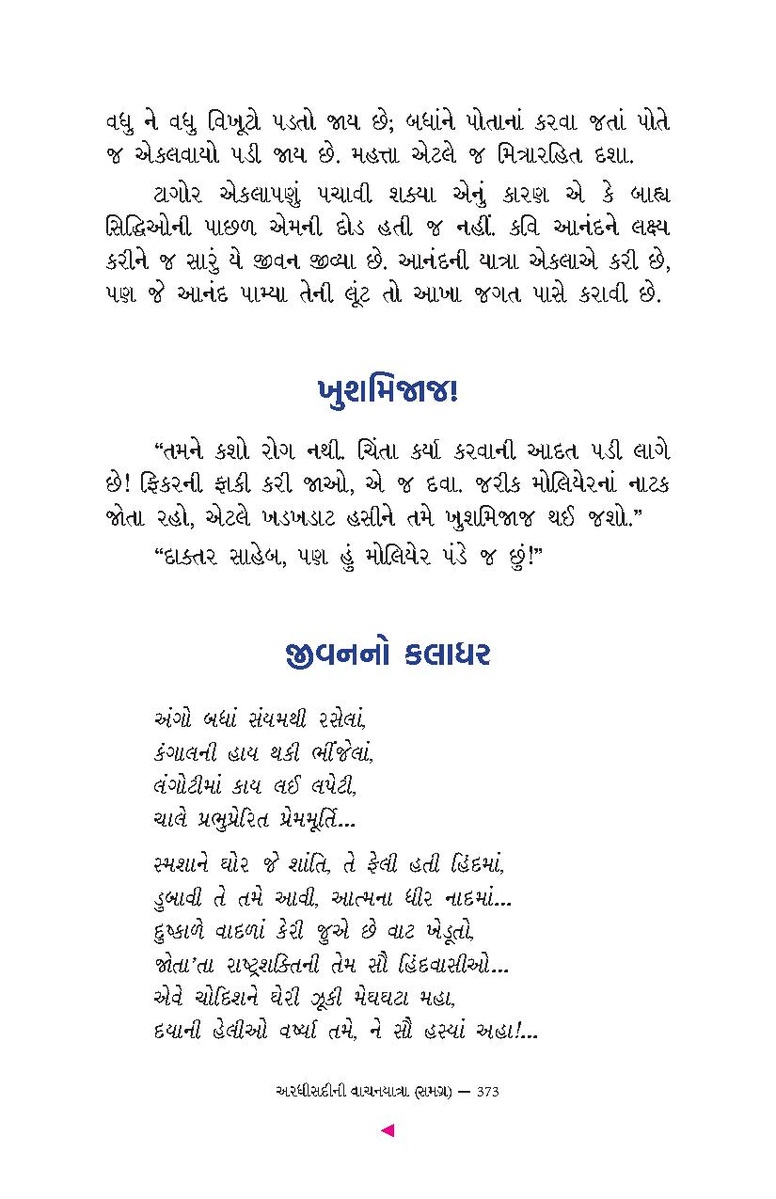 વધુ ને વધુ વિખૂટો પડતો જાય છે; બધાંને પોતાનાં કરવા જતાં પોતે
જ એકલવાયો પડી જાય છે. મહત્તા એટલે જ મિત્રારહિત દશા.
ટાગોર એકલાપણું પચાવી શક્યા એનું કારણ એ કે બાહ્ય
સિદ્ધિઓની પાછળ એમની દોડ હતી જ નહીં. કવિ આનંદને લક્ષ્ય
કરીને જ સારું યે જીવન જીવ્યા છે. આનંદની યાત્રા એકલાએ કરી છે,
પણ જે આનંદ પામ્યા તેની લૂંટ તો આખા જગત પાસે કરાવી છે.
ખુશમિજાજ!
“તમને કશો રોગ નથી. ચિંતા કર્યા કરવાની આદત પડી લાગે
છે! ફિકરની ફાકી કરી જાઓ, એ જ દવા. જરીક મોલિયેરનાં નાટક
જોતા રહો, એટલે ખડખડાટ હસીને તમે ખુશમિજાજ થઈ જશો.”
“દાક્તર સાહેબ, પણ હું મોલિયેર પંડે જ છું!”
જીવનનો કલાધર
અંગો બધાં સંયમથી રસેલાં,
કંગાલની હાય થકી ભીંજેલાં,
લંગોટીમાં કાય લઈ લપેટી,
ચાલે પ્રભુપ્રેરિત પ્રેમમૂર્તિ...
સ્મશાને ઘોર જે શાંતિ, તે ફેલી હતી હિંદમાં,
ડુબાવી તે તમે આવી, આત્મના ધીર નાદમાં...
દુષ્કાળે વાદળાં કેરી જુએ છે વાટ ખેડૂતો,
જોતા’તા રાષ્ટ્રશક્તિની તેમ સૌ હિંદવાસીઓ...
એવે ચોદિશને ઘેરી ઝૂકી મેઘઘટા મહા,
દયાની હેલીઓ વર્ષ્યા તમે, ને સૌ હસ્યાં અહા!...
અરધીસદીની વાચનયાત્રા (સમગ્ર) — 373